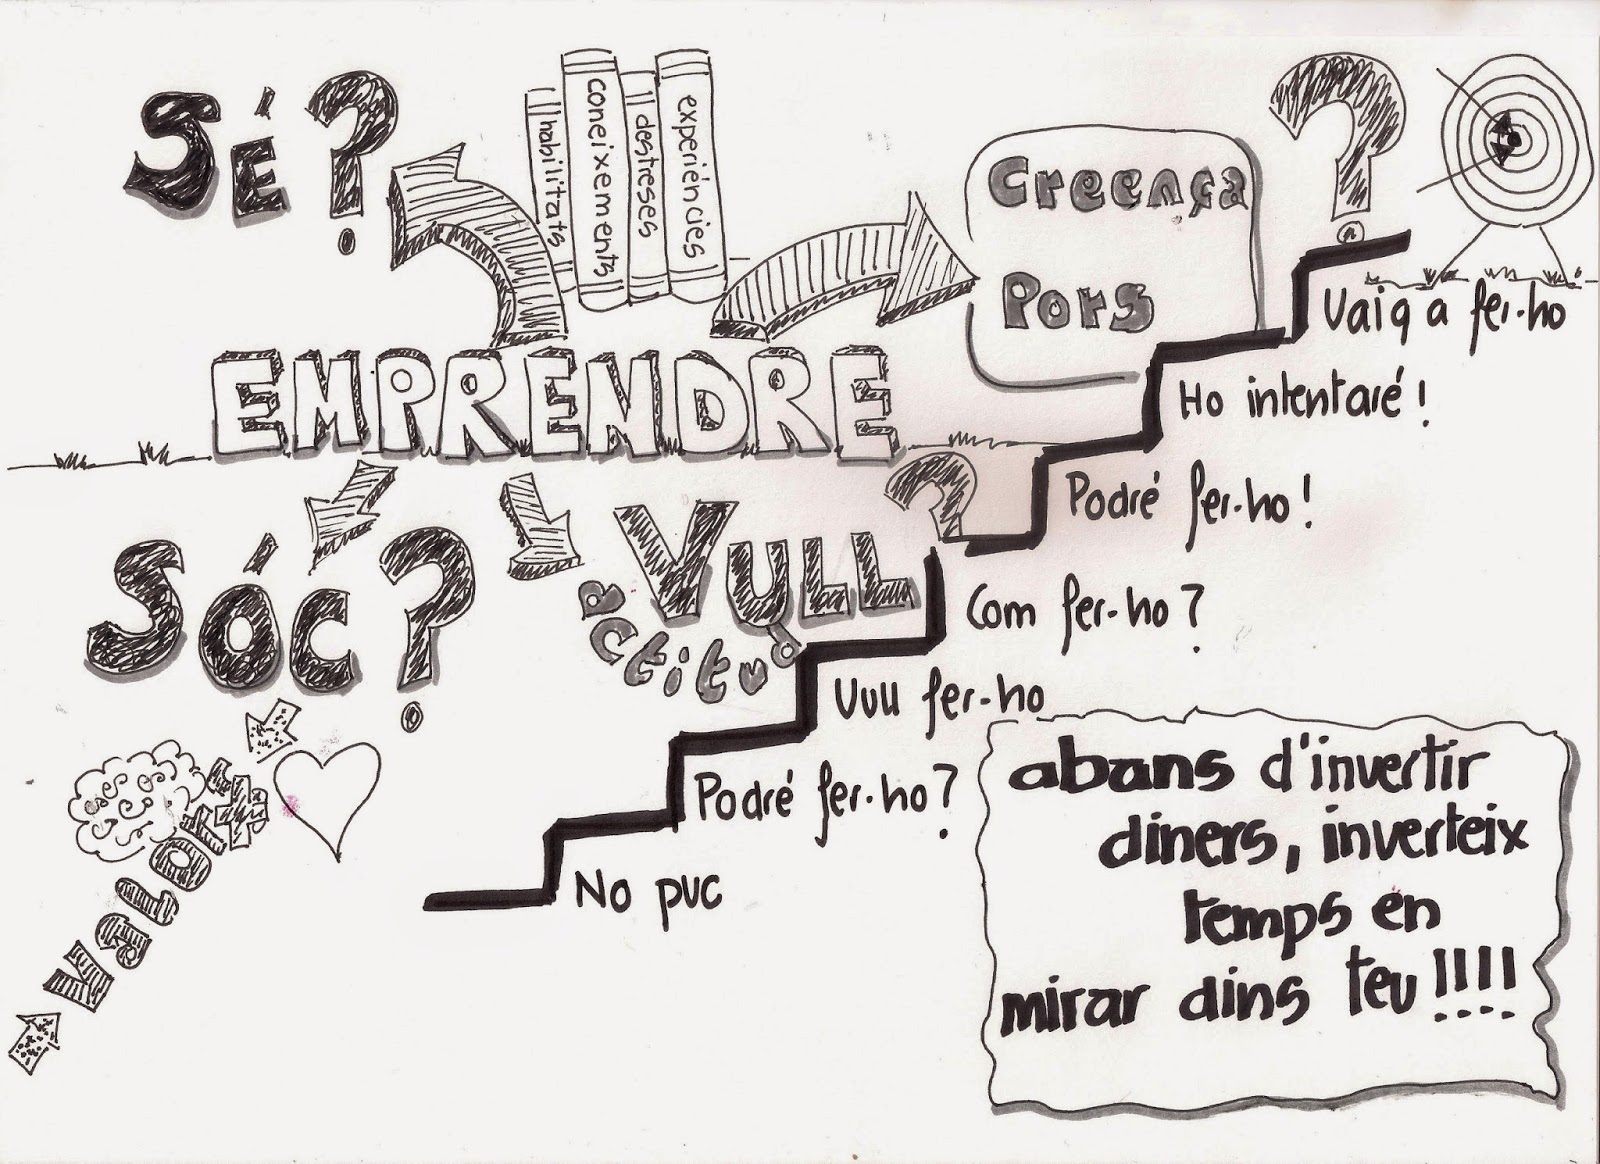 Sé?
habilitats
coneixements
destreses
experiéncies
Creença
Pors
?
EMPRENDRE
Sóc?
Vull?
actitud
Valor
+
Vaig a fer-ho
Ho intentaré!
Podré fer-ho!
Com fer-ho?
Vull fer-ho
Podré fer-ho?
No puc
abans d'invertir
diners, inverteix
temps en
mirar dins teu!!!!